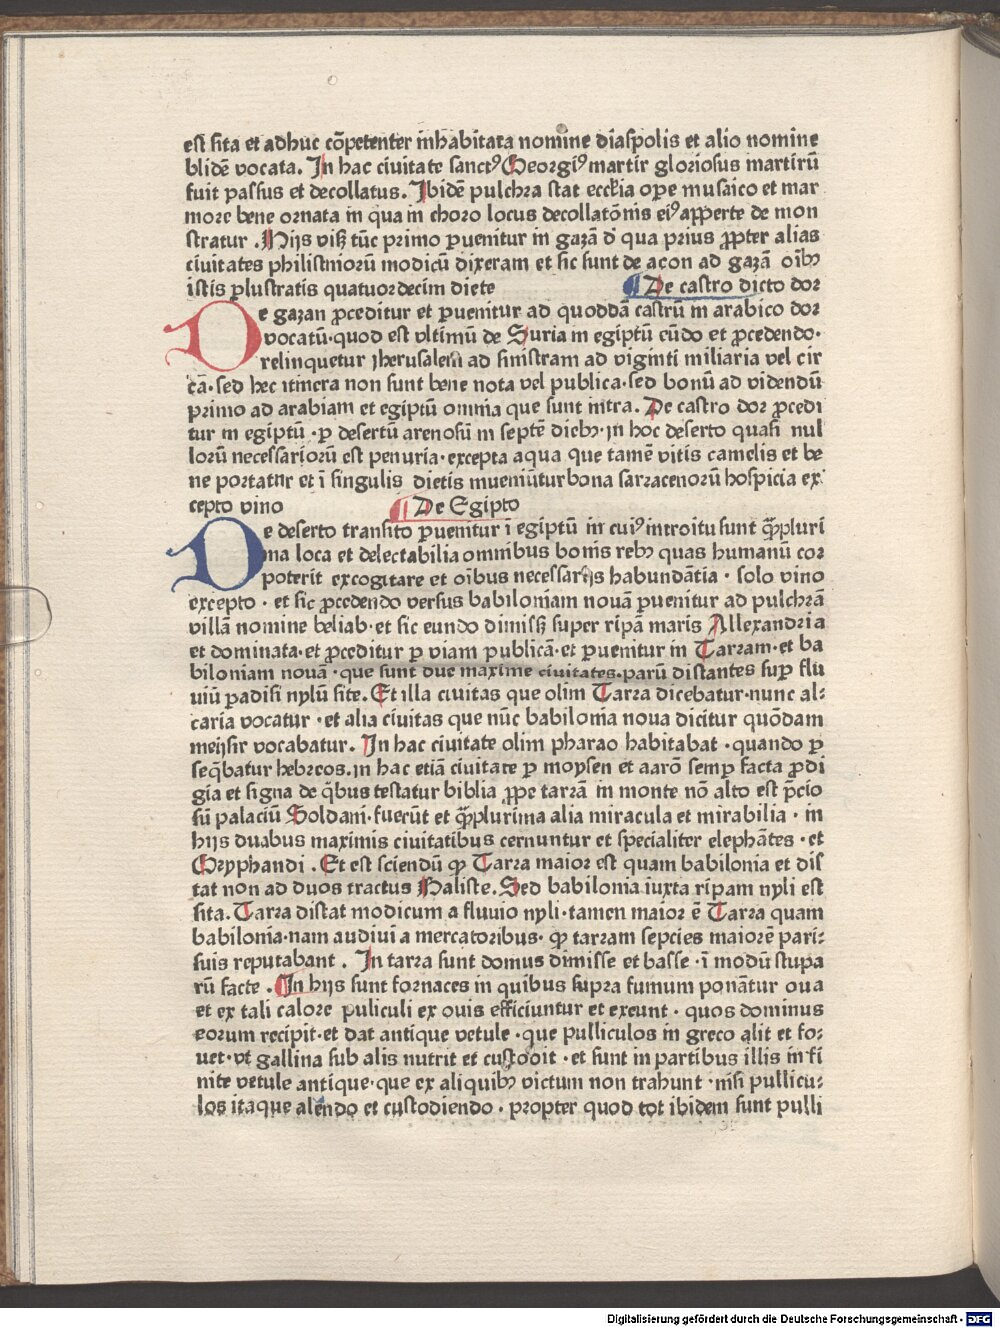 est sita et adhuc cõpetenter inhabitata nomine diaspolis et alio nomine
blidẽ vocata. In hac ciuitate sanctꝰ Georgiꝰ martir gloriosus martirũ
fuit passus et decollatus. Ibidẽ pulchra stat eccl̃ia ope musaico et mar
more bene ornata in qua in choro locus decollatõnis eiꝰ apperte de mon
stratur . Hijs visꝭ tũc primo ꝑuenitur in gazã d̾ qua prius ꝓpter alias
ciuitates philistinorũ modicũ dixeram et sic sunt de acon ad gazã oĩbꝫ
istis ꝑlustratis quatuordecim diete ¶ De castro dicto dor
De gazan ꝓceditur et ꝑuenitur ad quoddã castrũ in arabico dor
vocatũ·quod est vltimũ de Suria in egiptũ eũdo et ꝓcedendo·
relinquetur Jherusalem ad sinistram ad viginti miliaria vel cir
cã· sed hec itinera non sunt bene nota vel publica·sed bonũ ad videndũ
primo ad arabiam et egiptũ omnia que sunt intra. De castro dor ꝓcedi
tur in egiptũ ·ꝑ desertũ arenosũ in septẽ diebꝫ·in hoc deserto quasi nul
lorũ necessariorũ est penuria·excepta aqua que tamẽ vitis camelis et be
ne portatur et ĩ singulis dietis inueniũtur bona sarracenorũ hospicia ex
cepto vino ¶ De Egipto
De deserto transito ꝑuenitur ĩ egiptũ in cuiꝰ introitu sunt q̃ꝫpluri
ma loca et delectabilia omnibus bonis rebꝫ quas humanũ cor
poterit excogitare et oĩbus necessarijs habundãtia · solo vino
excepto · et sic ꝓcedendo versus babiloniam nouã ꝑuenitur ad pulchrã
villã nomine beliab·et sic eundo dimissꝭ super ripã maris Allexandria
et dominata·et ꝓceditur ꝑ viam publicã·et ꝑuenitur in Tarram·et ba
biloniam nouã ·que sunt due maxime ciuitates·parũ distantes suꝑ flu
uiũ ꝑadisi nylũ site. Et illa ciuitas que olim Tarra dicebatur·nunc al⸗
caria vocatur ·et alia ciuitas que nũc babilonia noua dicitur quõdam
meijsir vocabatur. In hac ciuitate olim pharao habitabat ·quando ꝑ
seq̃batur hebreos.in hac etiã ciuitate ꝑ moysen et aarõ semꝑ facta ꝓdi
gia et signa de q̃bus testatur biblia ꝓpe tarrã in monte nõ alto est p̃cio
sũ palaciũ Soldani·fuerũt et q̃ꝫplurima alia miracula et mirabilia · in
hijs duabus maximis ciuitatibus cernuntur et specialiter elephãtes ·et
Gryphandi . Et est sciendũ ꝙ Tarra maior est quam babilonia et dis
tat non ad duos tractus Baliste. Sed babilonia iuxta ripam nyli est
sita. Tarra distat modicum a fluuio nyli·tamen maior ẽ Tarra quam
babilonia·nam audiui a mercatoribus· ꝙ tarram sepcies maiorẽ pari⸗
suis reputabant . In tarra sunt domus dimisse et basse ·ĩ modũ stupa
rũ facte . In hijs sunt fornaces in quibus supra fumum ponãtur oua
et ex tali calore puliculi ex ouis efficiuntur et exeunt · quos dominus
eorum recipit·et dat antique vetule ·que pulliculos in greco alit et fo⸗
uet·vt gallina sub alis nutrit et custodit ·et sunt in partibus illis infi
nite vetule antique·que ex aliquibꝫ victum non trahunt ·nisi pullicu⸗
los itaque alendo et custodiendo · propter quod tot ibidem sunt pulli
Digitalisierung gefördert durch die Deutsche Forschungsgemeinschaft - DFG